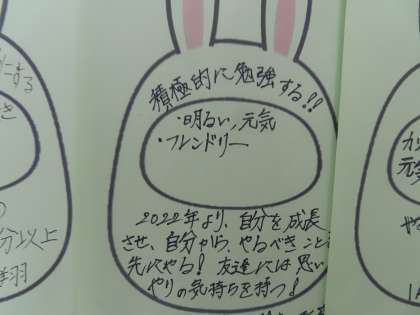 積極的に勉強する!!
・明るい、元気
・フレンドリー
2022年より、自分を成長
させ、自分から、やるべきことを
先にやる！友達には思い
やりの気持ちを持つ！
ーする
き
の
分以上
羽
カッ
元気
や